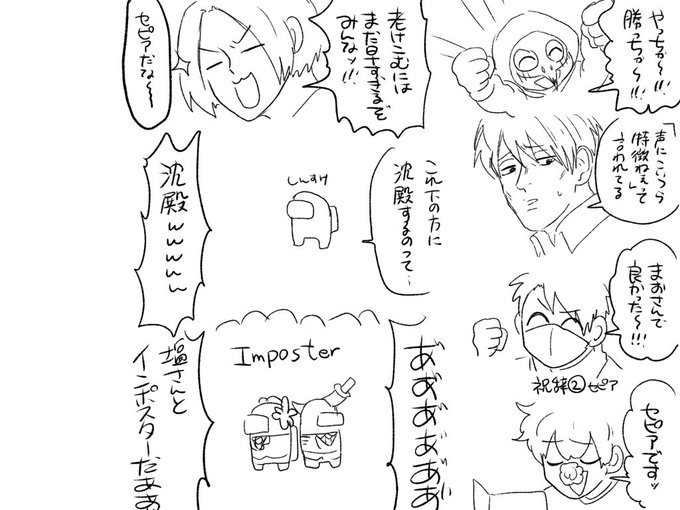 やっちが〜!!!
勝っちが〜!!!
「声にこいつら
特徴ねぇ」って
言われてる
まおさんで
良かった〜!!!
祝辞②セピア
セピアですッ
老けこむには
まだ早すぎるぞ
みんなッ!!
セピアだな〜〜
これ下の方に
沈殿するのって…
しんすけ
沈殿wwwww
あああああああ
Imposter
塩さんと
インポスターだああ